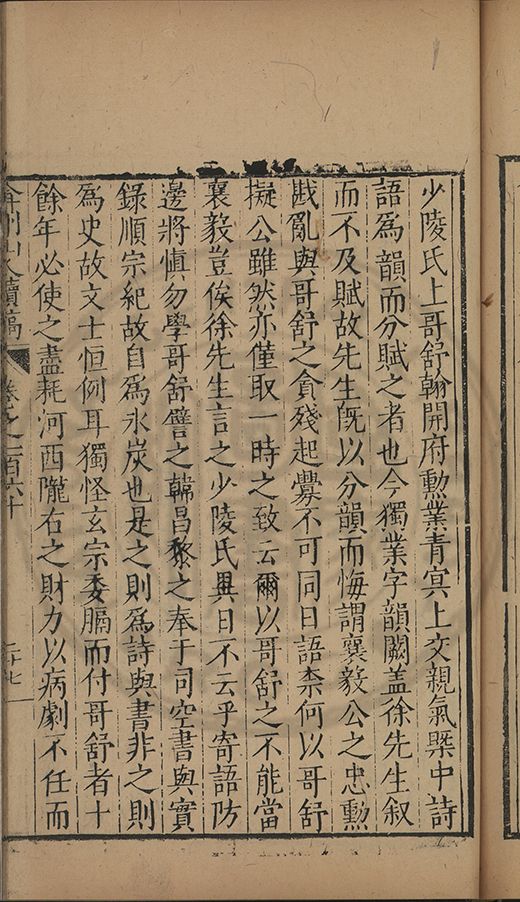 少陵氏上哥舒翰開府勲業青冥上交親氣槩中詩
語爲韻而分賦之者也今獨業字韻闕蓋徐先生叙
而不及賦故先生旣以分韻而悔謂襄毅公之忠勲
戡亂與哥舒之貪殘起釁不可同日語柰何以哥舒
擬公雖然亦僅取一時之致云爾以哥舒之不能當
襄毅豈俟徐先生言之少陵氏異日不云乎寄語防
邊將慎勿學哥舒譬之韓昌黎之奉于司空書與實
錄順宗紀故自爲氷炭也是之則爲詩與書非之則
爲史故文士恒例耳獨怪玄宗委膈而付哥舒者十
餘年必使之盡耗河西隴右之財力以病劇不任而
弇州山人續稿 卷之一百六十 二十七